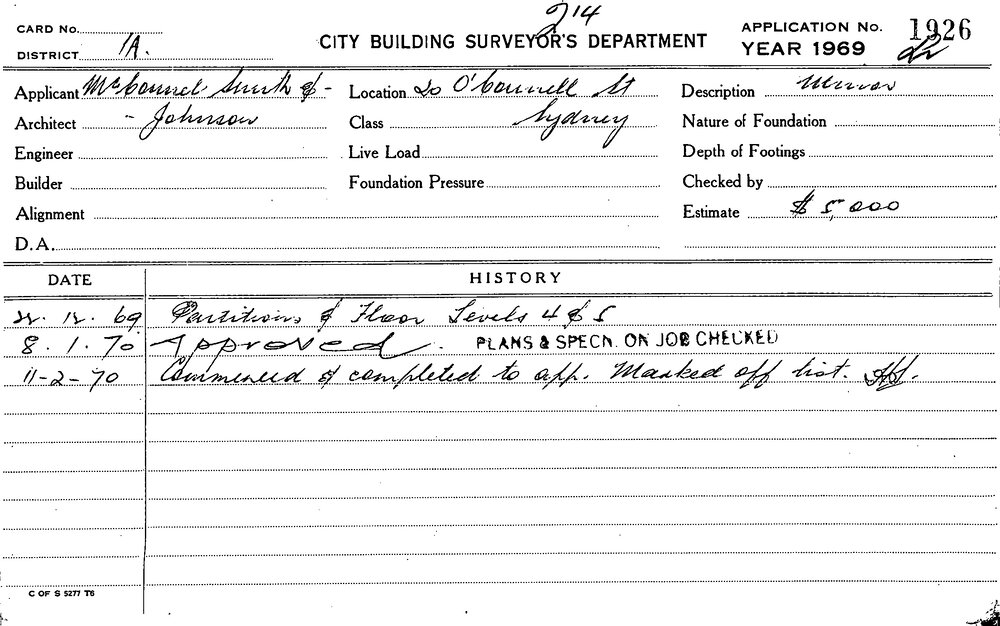 214
CARD No.
CITY BUILDING SURVEYOR'S DEPARTMENT
APPLICATION No. 1926
DISTRICT 1A.
YEAR 1969
Applicant McConnel Smith & -
Location 20 O'Connell St
Description Minor
Architect - Johnson
Class Sydney
Nature of Foundation
Engineer
Live Load
Depth of Footings
Builder
Foundation Pressure
Checked by
Alignment
Estimate $ 5,000
D.A.
DATE HISTORY
12. 69 Partitions & Floor Levels 4 & 5
8. 1. 70 Approved. PLANS & SPECN. ON JOB CHECKED
11-2-70 Commenced & completed to app. Marked off list.
C OF S 5277 T6